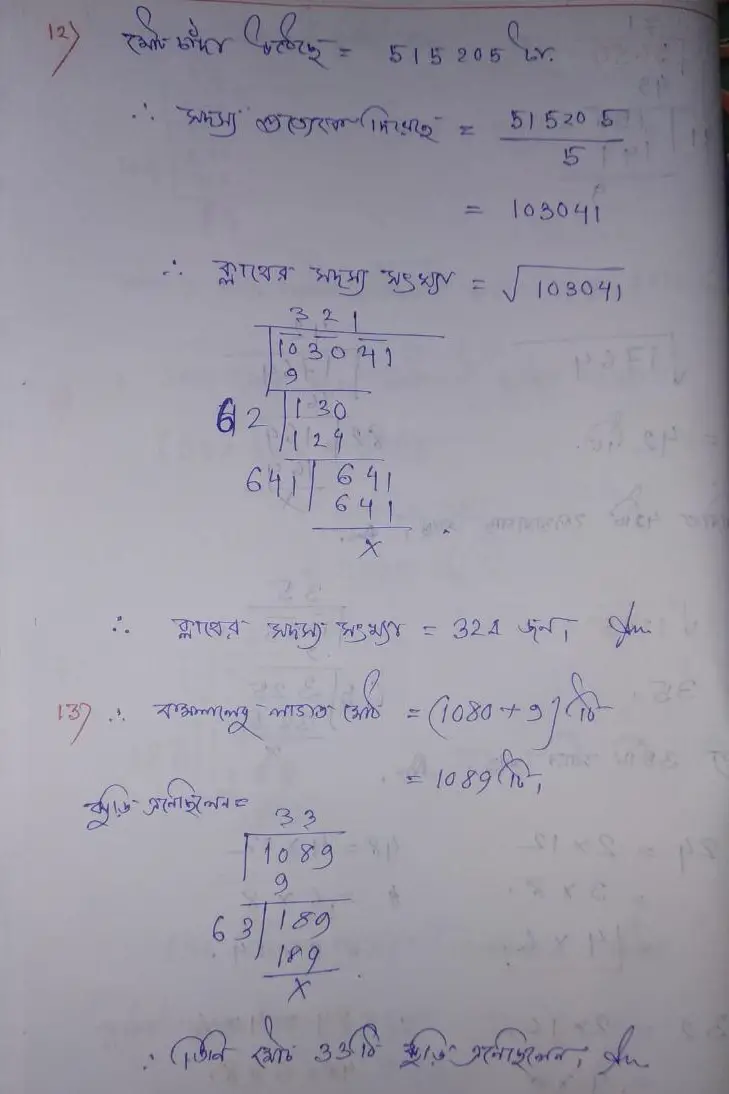 12) মোট চাঁদা উঠেছে = 515205 টা.
∴ সদস্য প্রত্যেকে দিয়েছে = 515205
5
= 103041
∴ ক্লাবের সদস্য সংখ্যা = √103041
321
103041
9
62 130
124
641 641
641
x
∴ ক্লাবের সদস্য সংখ্যা = 321 জন। Ans.
13) ∴ মোট = (1080 + 9) টি
= 1089 টি।
ঝুড়ি এনেছিলেন =
33
1089
9
63 189
189
x
∴ তিনি মোট 33টি ঝুড়ি এনেছিলেন। Ans.